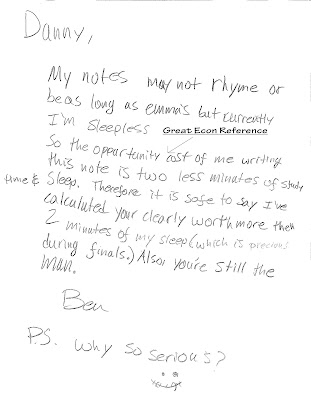 Danny,
My notes may not rhyme or
be as long as emma's but currently
I'm Sleepless Great Econ Reference
So the opportunity cost of me writing
this note is two less minutes of study
time & Sleep. Therefore it is safe to say I've
calculated your clearly worth more then
2 minutes of my sleep (which is precious
during finals.) Also, you're still the
man.
Ben
P.S. Why so serious?